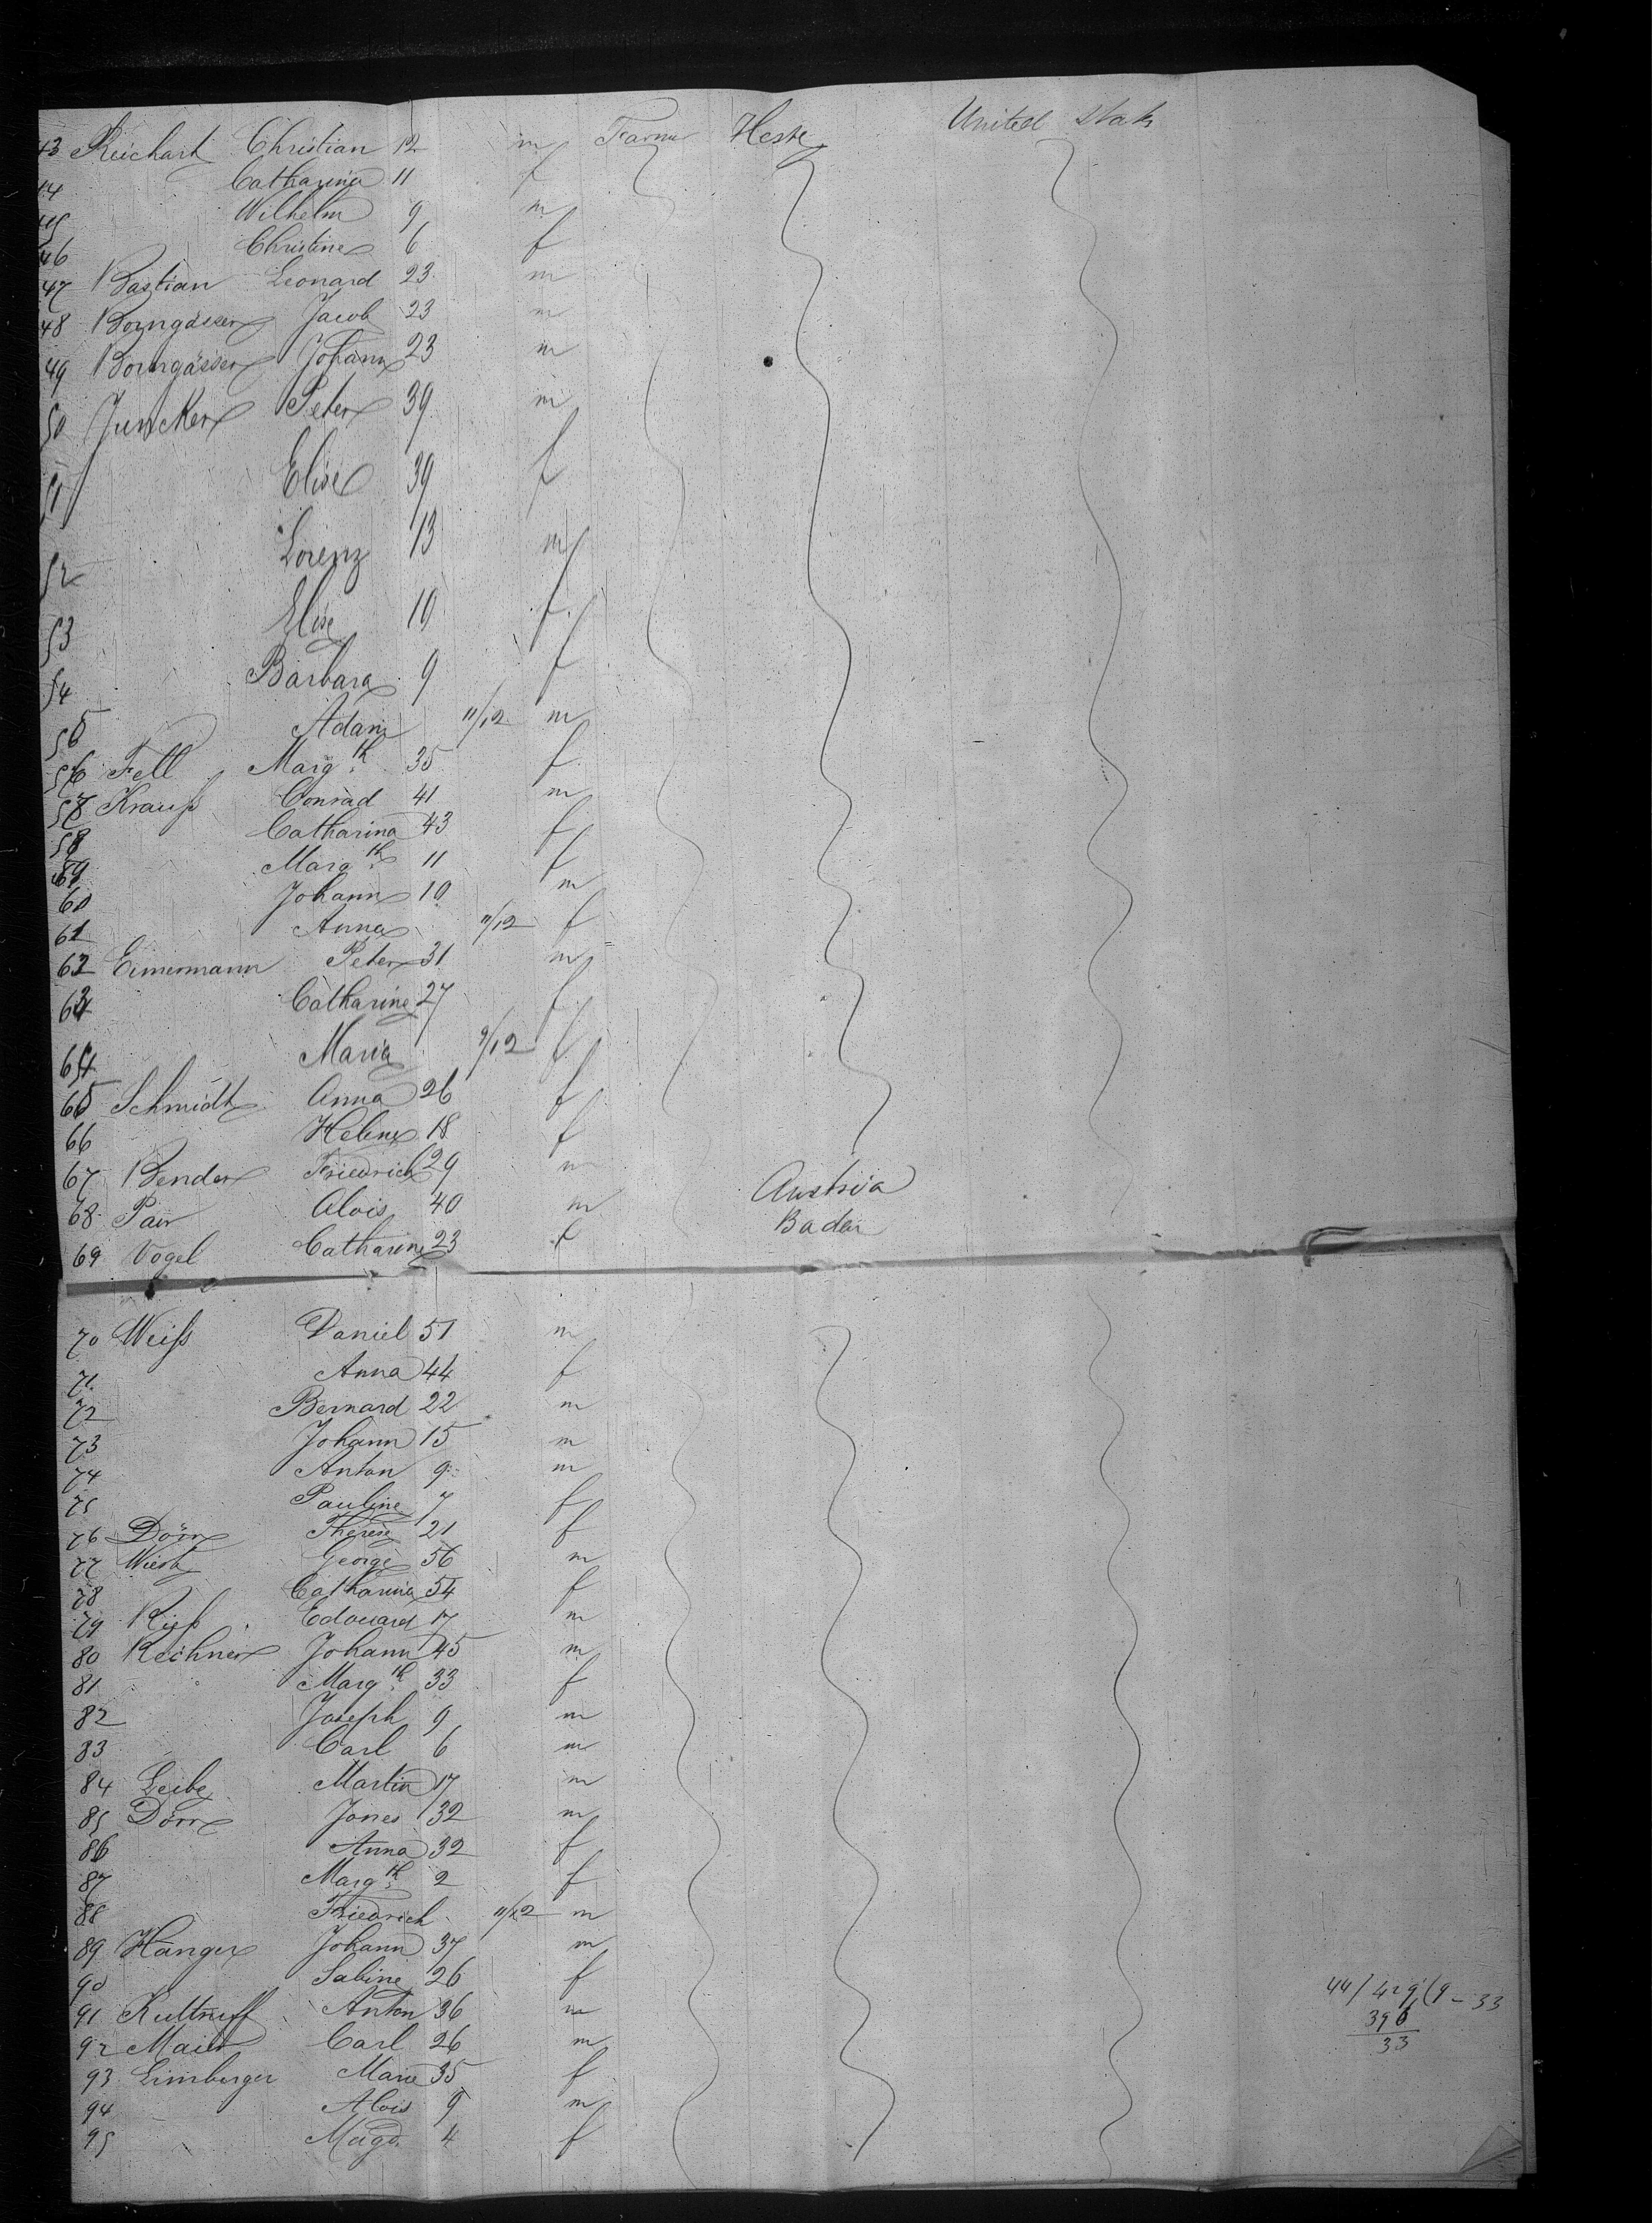 43 Reichart Christian 12 m Farmer Hesse United Stats
44 Catharina 11 f
45 Wilhelm 9 m
46 Christine 6 f
47 Bastian Leonard 23 m
48 Borngässer Jacob 23 m
49 Borngässer Johann 23 m
50 Juncker Peter 39 m
51 Elise 39 f
52 Lorenz 13 m
53 Elise 10 f
54 Barbara 9 f
55 Adam 11/12 m
56 Fell Margth 35 f
57 Krauß Conrad 41 m
58 Catharina 43 f
59 Margth 11 f
60 Johann 10 m
61 Anna 11/12 f
62 Eimermann Peter 31 m
63 Catharine 27 f
64 Maria 9/12 f
65 Schmidt Anna 26 f
66 Helene 18 f
67 Bender Friedrich 29 m
68 Alois 40 m Austria
69 Vogel Catharine 23 f Baden
70 Weiß Daniel 51 m
71 Anna 44 f
72 Bernard 22 m
73 Johann 15 m
74 Anton 9 m
75 Pauline 7 f
76 Dörr Therese 21 f
77 George 56 m
78 Catharina 54 f
79 Edouard 17 m
80 Rechner Johann 45 m
81 Margth 33 f
82 Joseph 9 m
83 Carl 6 m
84 Leibe Martin 17 m
85 Dörr Jones 32 m
86 Anna 32 f
87 Margth 2 f
88 Friedrich 11/12 m
89 Hanger Johann 37 m
90 Sabine 26 f
91 Kuttruff Anton 36 m
92 Maier Carl 26 m
93 Limberger Marie 35 f
94 Alois 9 m
95 Magd. 4 f
44/429(9-33
396
33